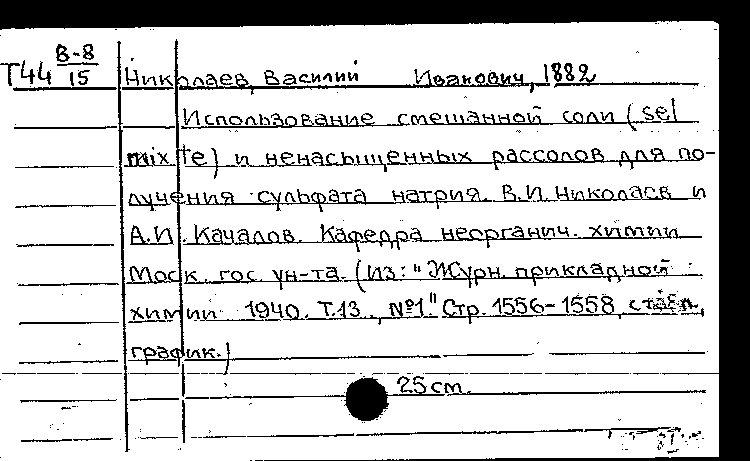 Т44 В-8/15 Николаев, Василий Иванович, 1882
Использование смешанной соли (sel
mixte) и ненасыщенных рассолов для по-
лучения сульфата натрия. В.И. Николаев и
А.И. Качалов. Кафедра неорганич. химии
Моск. гос. ун-та. (Из: "Журн. прикладной
химии 1940. Т.13., №1" Стр. 1556-1558, с табл,
график.)
25 см.